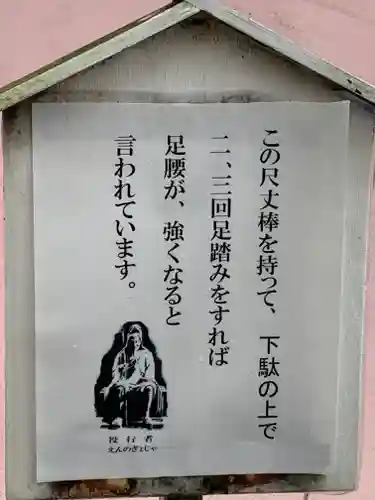 この尺丈棒を持って、下駄の上で
二、三回足踏みをすれば
足腰が、強くなると
言われています。
役行者
えんのぎょじゃ